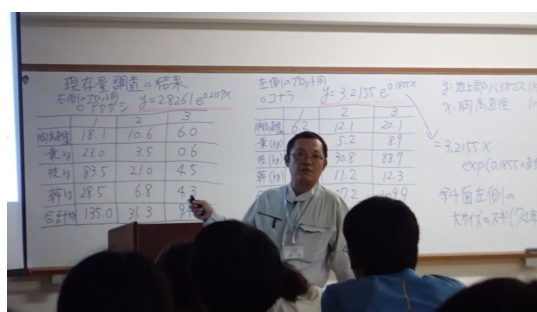 現存量調査の結果
右側のプロット用
○アカマツ y=2.8261e
1 2 3
胸高直径 18.1 10.6 6.0
葉kg 23.0 3.5 0.6
枝kg 83.5 21.0 4.5
幹kg 28.5 6.8 4.3
合計kg 135.0 31.3
左側のプロット用
○コナラ y=3.2155e^0.1855x
2 3
胸高直径 6.2 12.1 20.1
葉(kg) 5.2 8.9
枝(kg) 30.8 88.7
幹(kg) 11.2 12.3
y:地上部バイオマス
x:胸高直径
=3.2155 x
exp(0.1855×
斜面左側の
大サイズのスギ